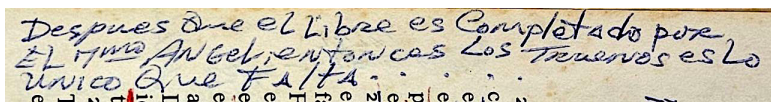 Despues que el Libro es Completado por
EL 7mo ANGEL, entonces Los Truenos es Lo
UNICO Que FALTA . . . . . .